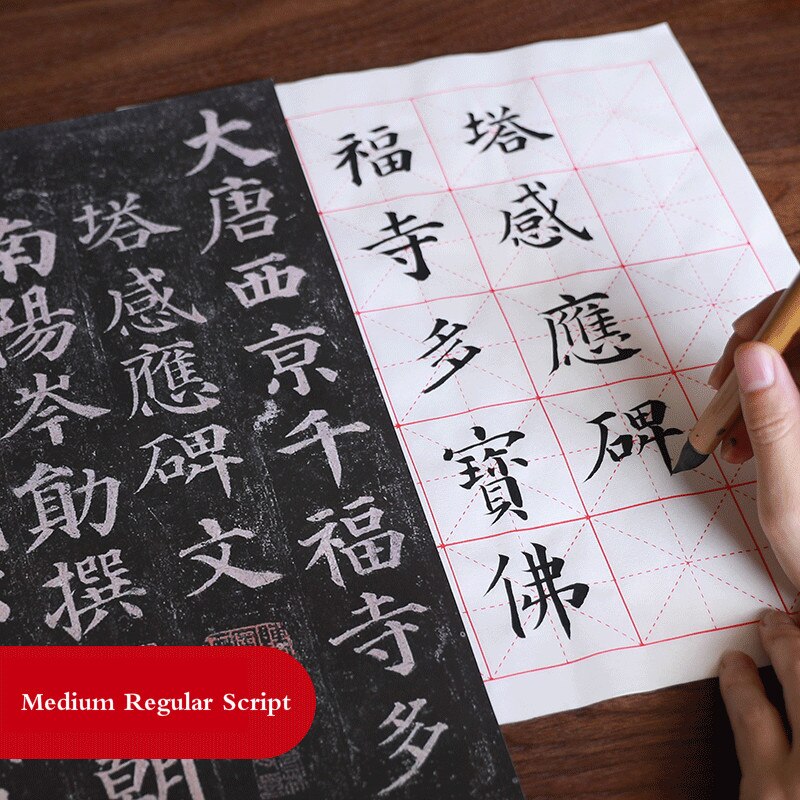 大唐西京千福寺多
塔感應碑文
南陽岑勛撰
朝
福寺多寶佛
塔感應碑
Medium Regular Script